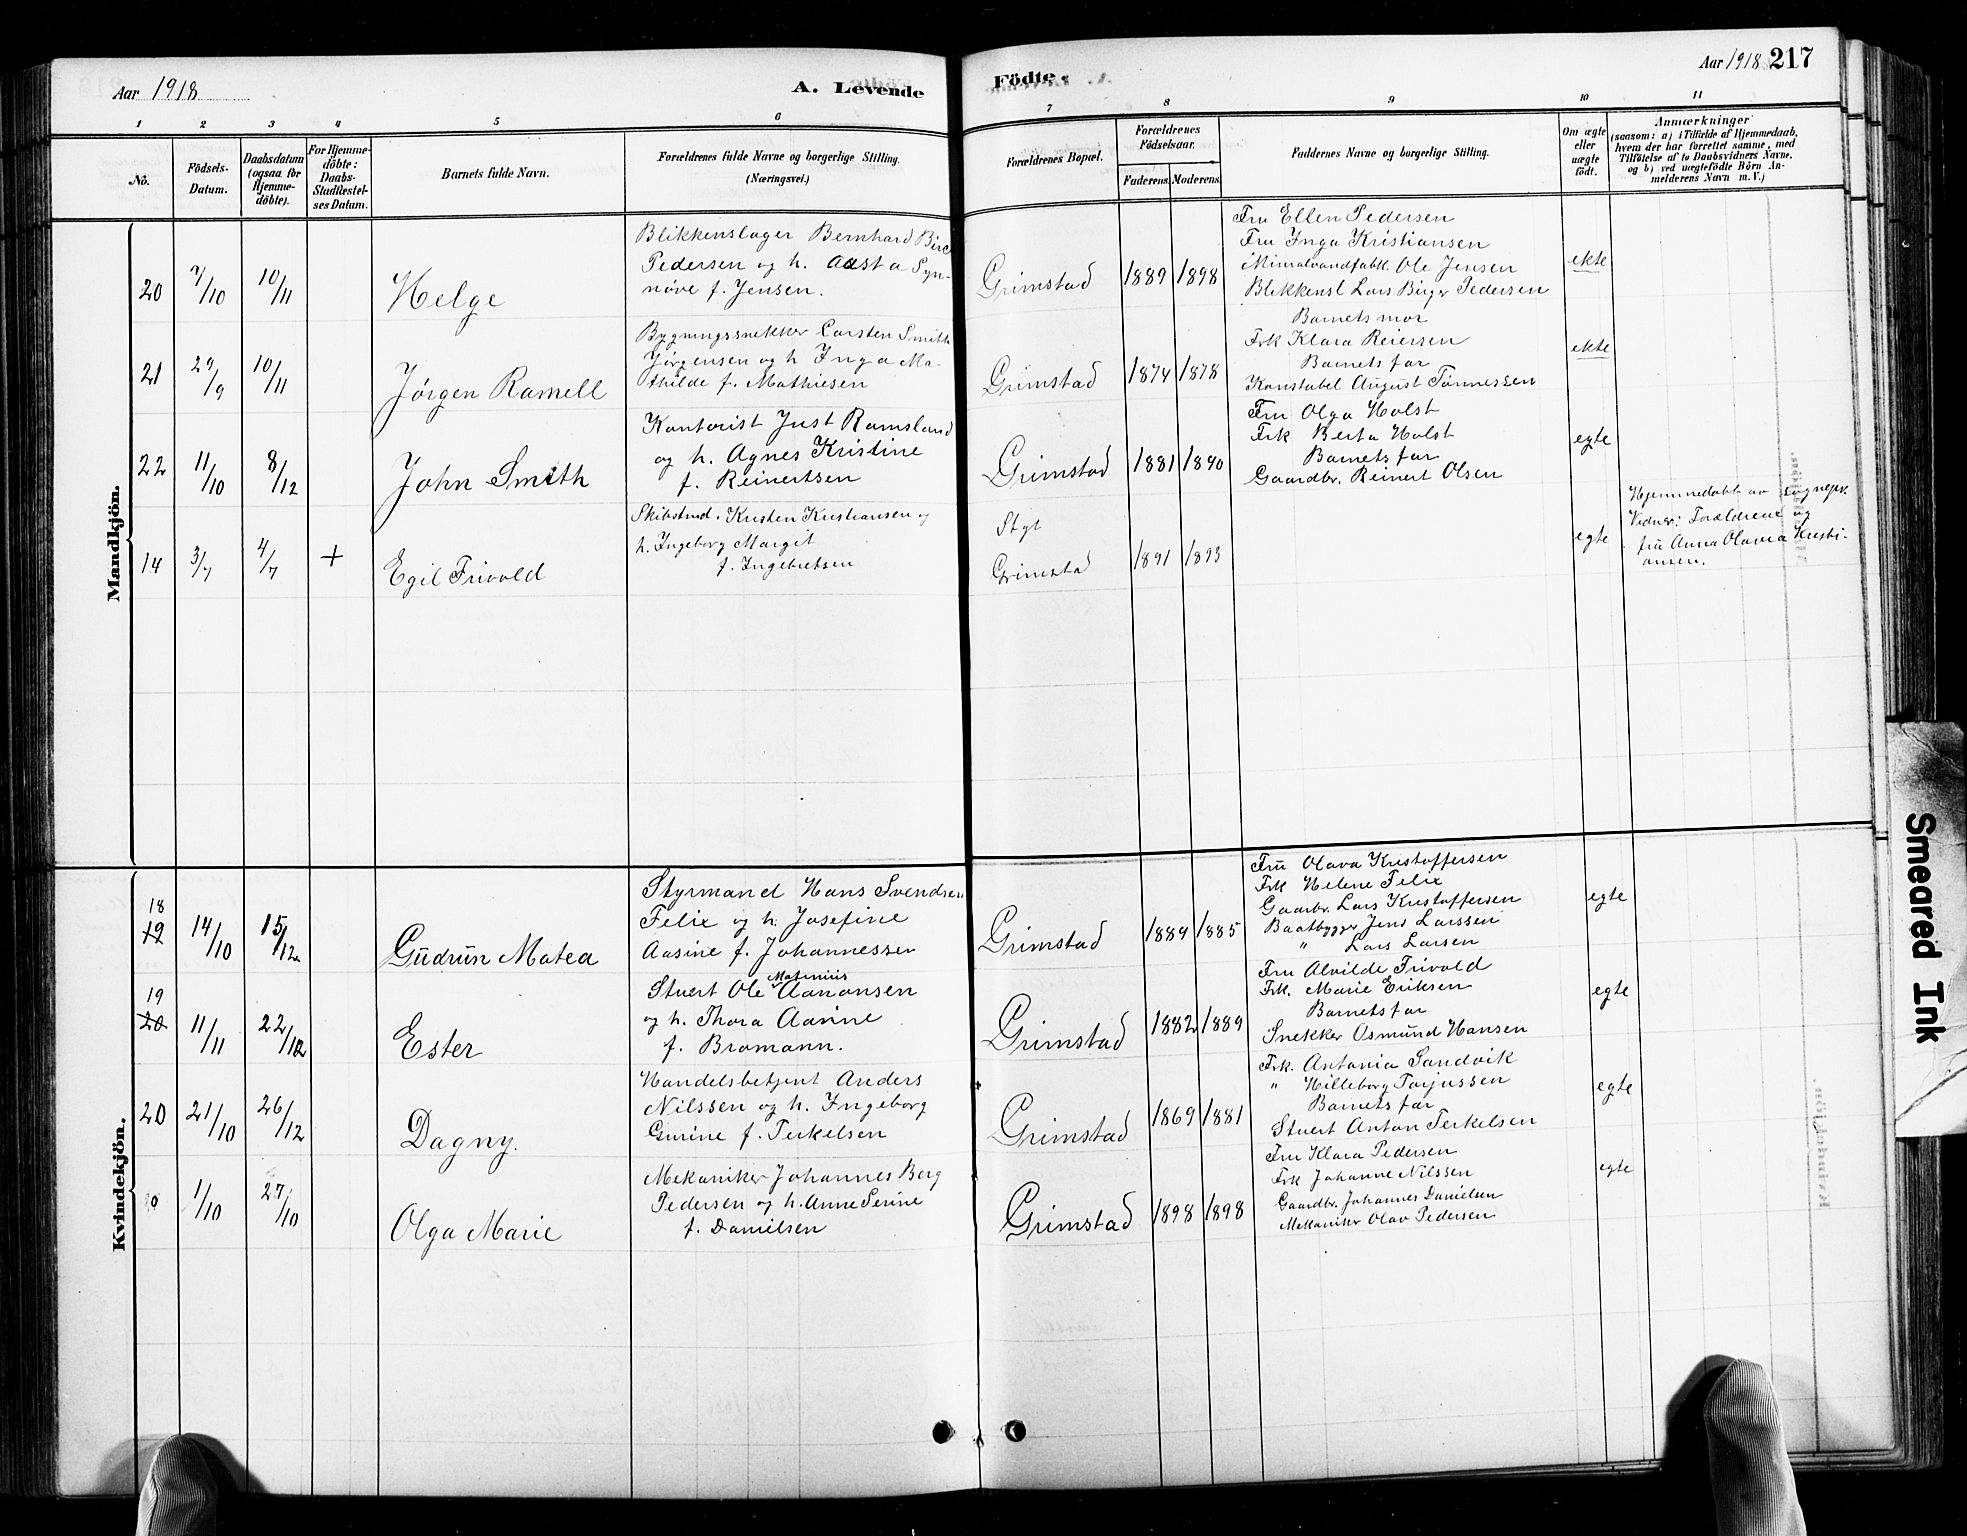 Aar 1918
A. Levende
Födte.
Aar 1918 217
1 2 3 4 5 6 7 8 9 10 11
No.
Födsels-
Datum.
Daabsdatum
(ogsaa for
Hjemme-
döbte).
For Hjemme-
döbte:
Daabs-
Stadfæstel-
ses Datum.
Barnets fulde Navn.
Forældrenes fulde Navne og borgerlige Stilling.
(Næringsvei.)
Forældrenes Bopæl.
Forældrenes
Födselsaar.
Faderens. Moderens.
Faddernes Navne og borgerlige Stilling.
Om ægte
eller
uægte
født.
Anmærkninger
(saasom: a) i Tilfælde af Hjemmedaab,
hvem der har forrettet samme, med
Tilföielse af to Daabsvidners Navne,
og b) ved uægtefödte Börn An-
melderens Navn m. V.)
Mandkjön.
20 7/10 10/11 Helge
Blikkenslager Bernhard Birc
Pedersen og h. Aasta Syn-
növe f. Jensen.
Grimstad 1889 1898
Fru Ellen Pedersen
Fru Inga Kristiansen
Mineralvandfabk. Ole Jensen
Blikkensl Lars Birger Pedersen
Barnets mor
ekte
21 29/9 10/11 Jörgen Ramell
Bygningssnekker Carsten Smith
Jörgensen og h Inga Ma-
thilde f. Mathiesen
Grimstad 1874 1878
Frk Klara Reiersen
Barnets far
Konstabel August Tönnessen
ekte
22 11/10 8/12 John Smith
Kontorist Just Ramsland
og h. Agnes Kristine
f. Reinertsen
Grimstad 1881 1890
Fru Olga Holst
Frk Berta Holst
Barnets far
Gaardbr. Reinert Olsen
egte
14 3/7 4/7 + Egil Frivold
Skibstmd. Kristen Kristiansen og
h. Ingeborg Margit
f. Ingebretsen
Styr
Grimstad 1891 1893
egte
Hjemmedöbt av sognepr.
Vidner: Forældrene og
fru Anna Olavia Kristi-
ansen.
Kvindekjön.
18
19 14/10 15/12 Gudrun Matea
Styrmand Hans Svendsen
Felix og h. Josefine
Aasine f. Johannessen
Grimstad 1884 1885
Fru Olava Kristoffersen
Frk Helene Felix
Gaardbr. Lars Kristoffersen
Baatbygger Jens Larssen
" Lars Larsen
egte
19
20 11/11 22/12 Ester
Stuert Ole Matinius Aanonsen
og h. Thora Aasine
f. Bromann.
Grimstad 1882 1889
Fru Alvilde Frivold
Frk. Marie Eriksen
Barnets far
Snekker Osmund Hansen
egte
20 21/10 26/12 Dagny.
Handelsbetjent Anders
Nilssen og h. Ingeborg
Gurine f. Terkelsen
Grimstad 1869 1881
Frk. Antonia Sandvik
" Hilleborg Torjussen
Barnets far
Stuert Anton Terkelsen
egte
1/10 27/10 Olga Marie
Mekaniker Johannes Berg
Pedersen og h. Anne Serine
f. Danielsen
Grimstad 1898 1898
Fru Klara Pedersen
Frk Johanne Nilssen
Gaardbr. Johannes Danielsen
Mekaniker Olav Pedersen
egte
Smeared Ink